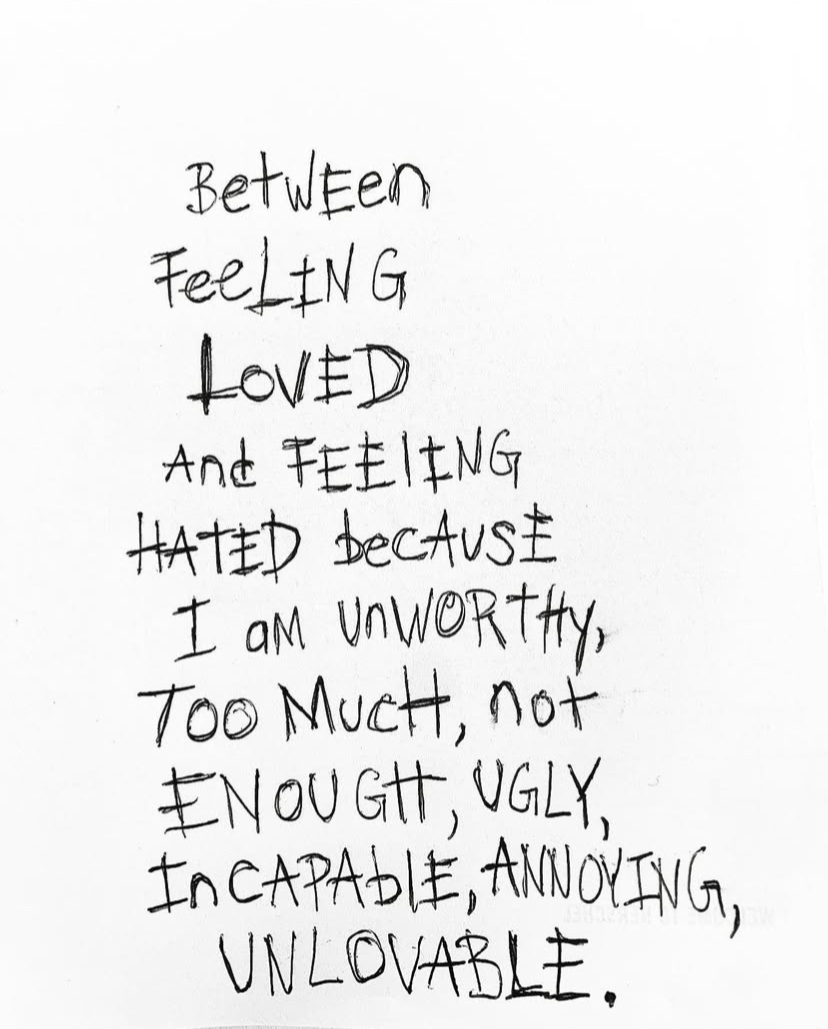 BetWEen
FeeLING
LOVED
And FEElING
HATED becAUSE
I aM UnWORTHy,
TOO MUcH, not
ENOUGH, UGLY,
InCAPAblE, ANNOYING,
UNLOVABLE.